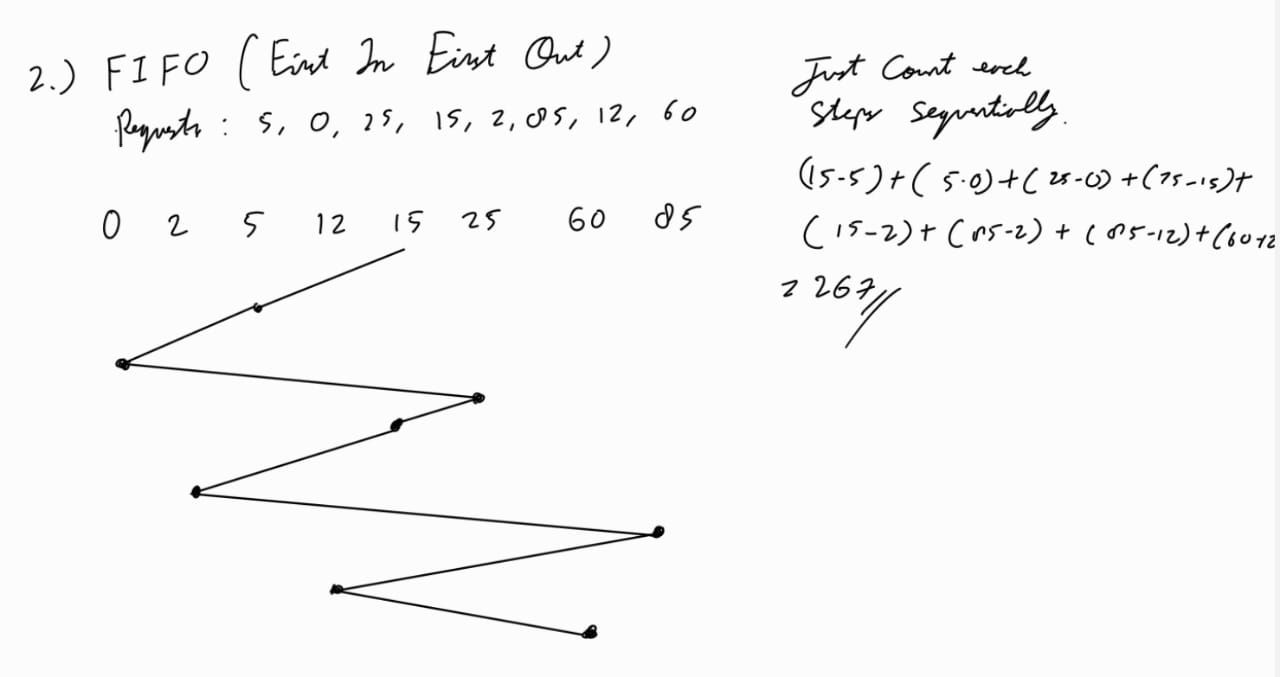 2.) FIFO (First In First Out)
Requests : 5, 0, 25, 15, 2, 85, 12, 60
0 2 5 12 15 25 60 85
Just Count each
Steps Sequentially.
(15-5)+(5-0)+(25-0)+(25-15)+
(15-2)+(85-2)+(85-12)+(60-12
= 267//